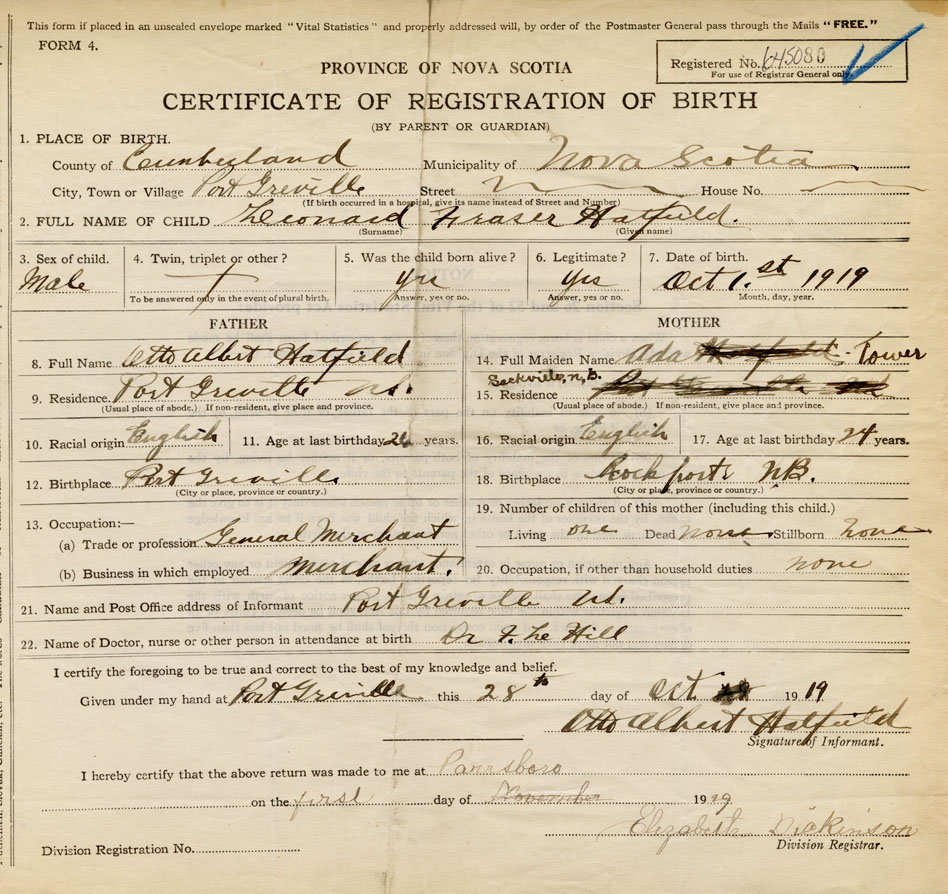 This form if placed in an unsealed envelope marked "Vital Statistics" and properly addressed will, by order of the Postmaster General pass through the Mails "FREE."
FORM 4.
Registered No. 645080
For use of Registrar General only.
PROVINCE OF NOVA SCOTIA
CERTIFICATE OF REGISTRATION OF BIRTH
(BY PARENT OR GUARDIAN)
1. PLACE OF BIRTH.
County of Cumberland Municipality of Nova Scotia
City, Town or Village Port Greville Street House No.
(If birth occurred in a hospital, give its name instead of Street and Number)
2. FULL NAME OF CHILD Leonard Fraser Hatfield.
(Surname) (Given name)
3. Sex of child. 4. Twin, triplet or other? 5. Was the child born alive? 6. Legitimate? 7. Date of birth.
Male yes Yes Oct 1. st 1919
To be answered only in the event of plural birth. Answer, yes or no. Answer, yes or no. Month, day, year.
FATHER MOTHER
8. Full Name Otto Albert Hatfield 14. Full Maiden Name Ada Hatfield - Tower
Sackville, n, b.
9. Residence. Port Greville N.S. 15. Residence
(Usual place of abode.) If non-resident, give place and province. (Usual place of abode.) If non-resident, give place and province.
10. Racial origin English 11. Age at last birthday 26 years. 16. Racial origin English 17. Age at last birthday 24 years.
12. Birthplace Port Greville 18. Birthplace Rockport NB.
(City or place, province or country.) (City or place, province or country.)
13. Occupation:— 19. Number of children of this mother (including this child.)
(a) Trade or profession General Merchant Living one Dead none Stillborn none
(b) Business in which employed merchant. 20. Occupation, if other than household duties none
21. Name and Post Office address of Informant Port Greville N.S.
22. Name of Doctor, nurse or other person in attendance at birth Dr F. Le Hill
I certify the foregoing to be true and correct to the best of my knowledge and belief.
Given under my hand at Port Greville this 28th day of Oct 1919
Otto Albert Hatfield
Signature of Informant.
I hereby certify that the above return was made to me at Parrsboro
on the first day of November 1919
Elizabeth Dickinson
Division Registrar.
Division Registration No.